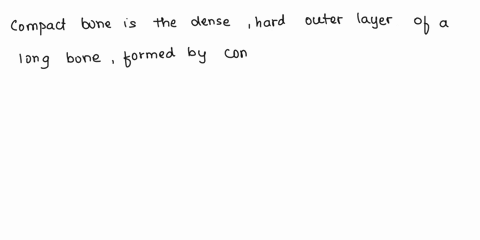 Compact bone is the dense , hard outer layer of a
long bone , formed by con